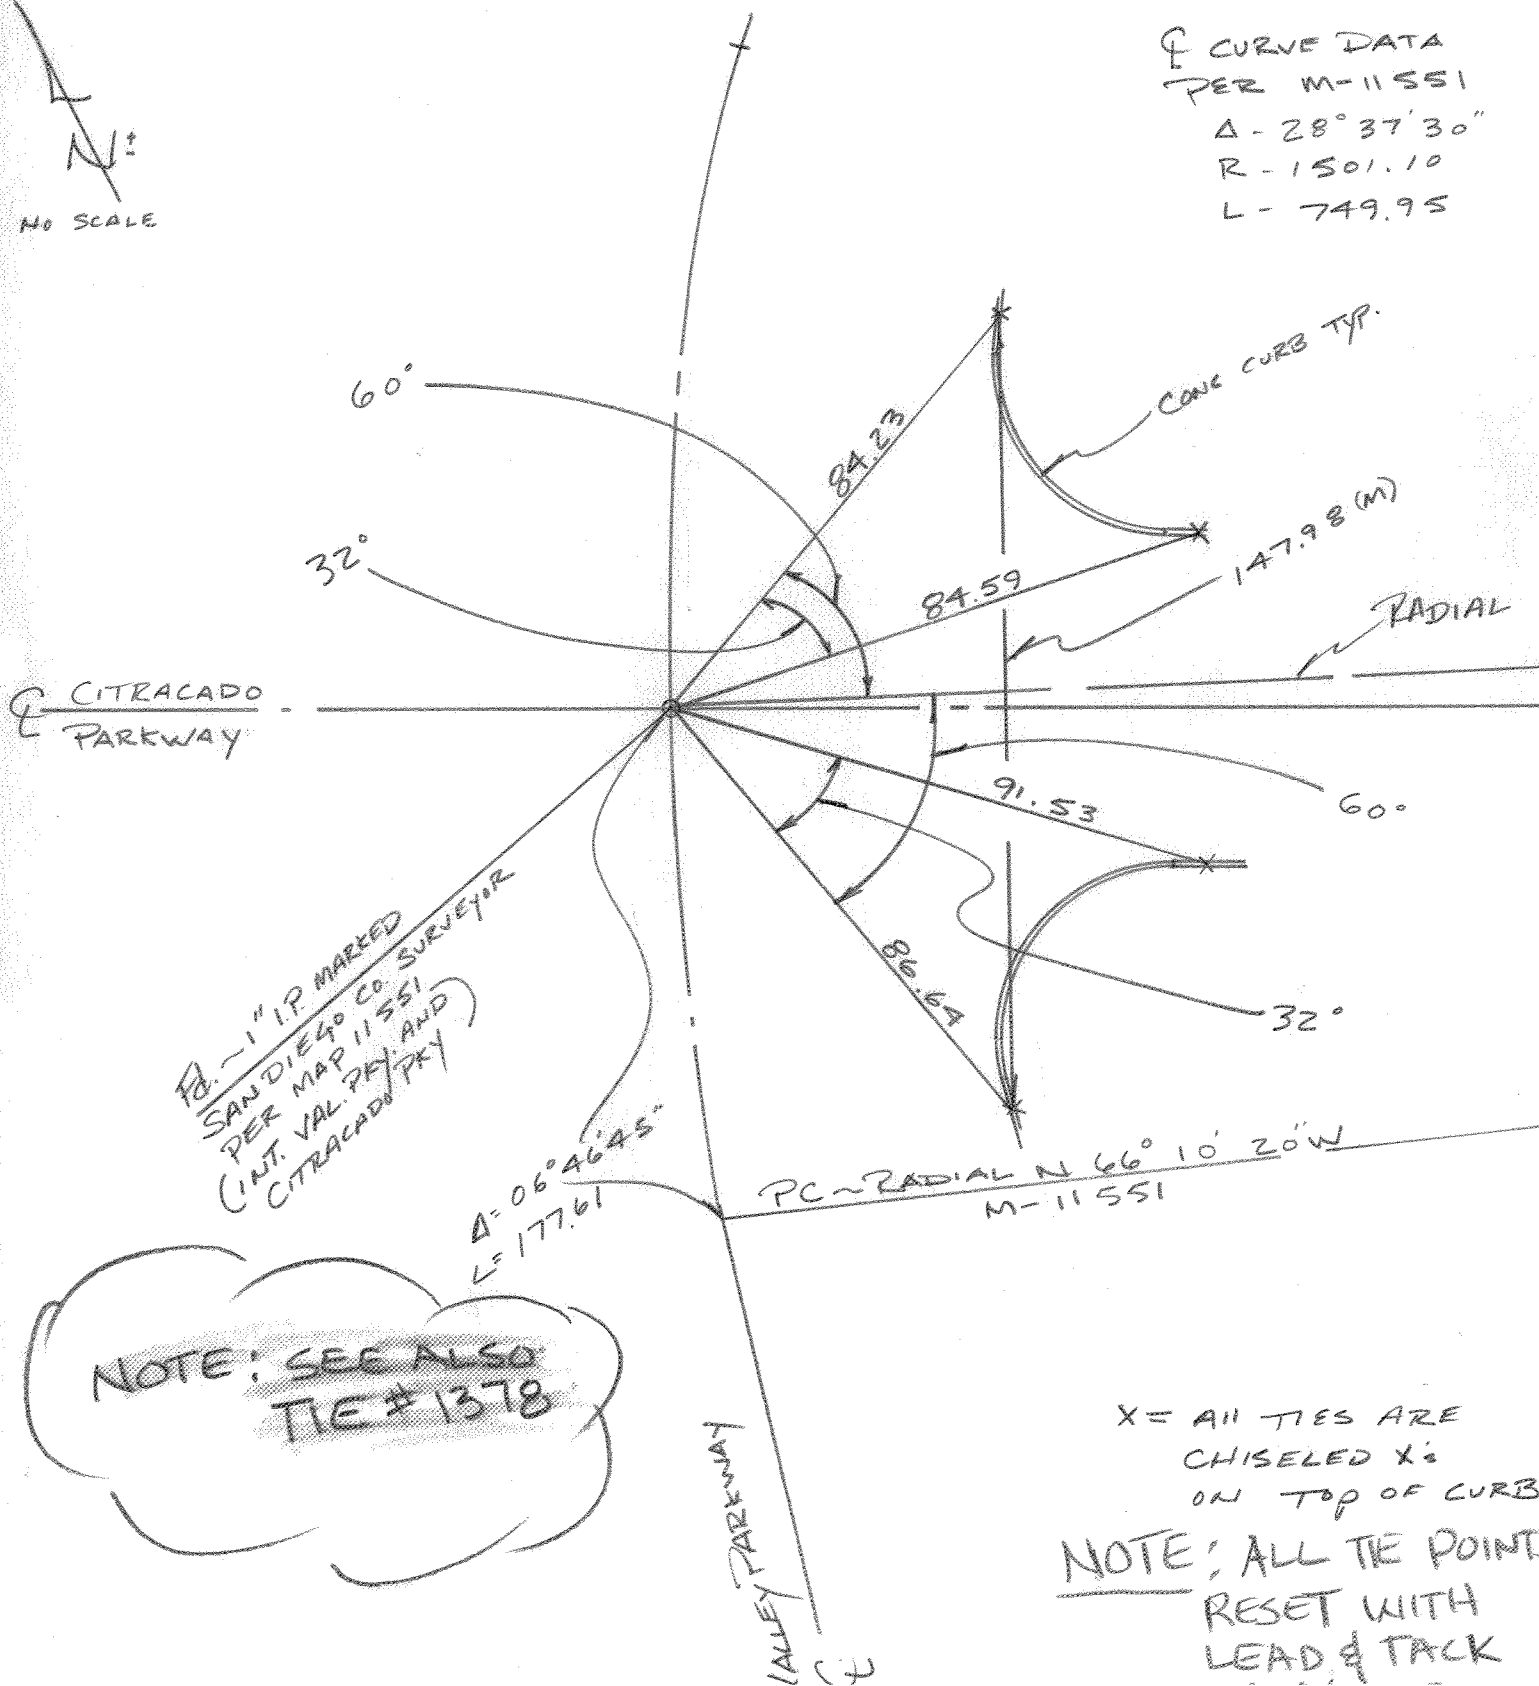 ℄ CURVE DATA
PER M-11551
Δ - 28° 37' 30"
R - 1501.10
L - 749.95
N±
NO SCALE
60°
84.23
CONC CURB TYP.
32°
84.59
147.98 (M)
RADIAL
℄ CITRACADO
PARKWAY
91.53
60°
86.64
32°
Fd. ~ 1" I.P. MARKED
SAN DIEGO CO. SURVEYOR
PER MAP 11551
(INT. VAL. PKY. AND
CITRACADO PKY)
Δ= 06° 46' 45"
L= 177.61
PC~RADIAL N 66° 10' 20"W
M-11551
NOTE: SEE ALSO
TIE #1378
VALLEY PARKWAY
℄
X = All TIES ARE
CHISELED X's
ON TOP OF CURB
NOTE: ALL TIE POINT
RESET WITH
LEAD & TACK